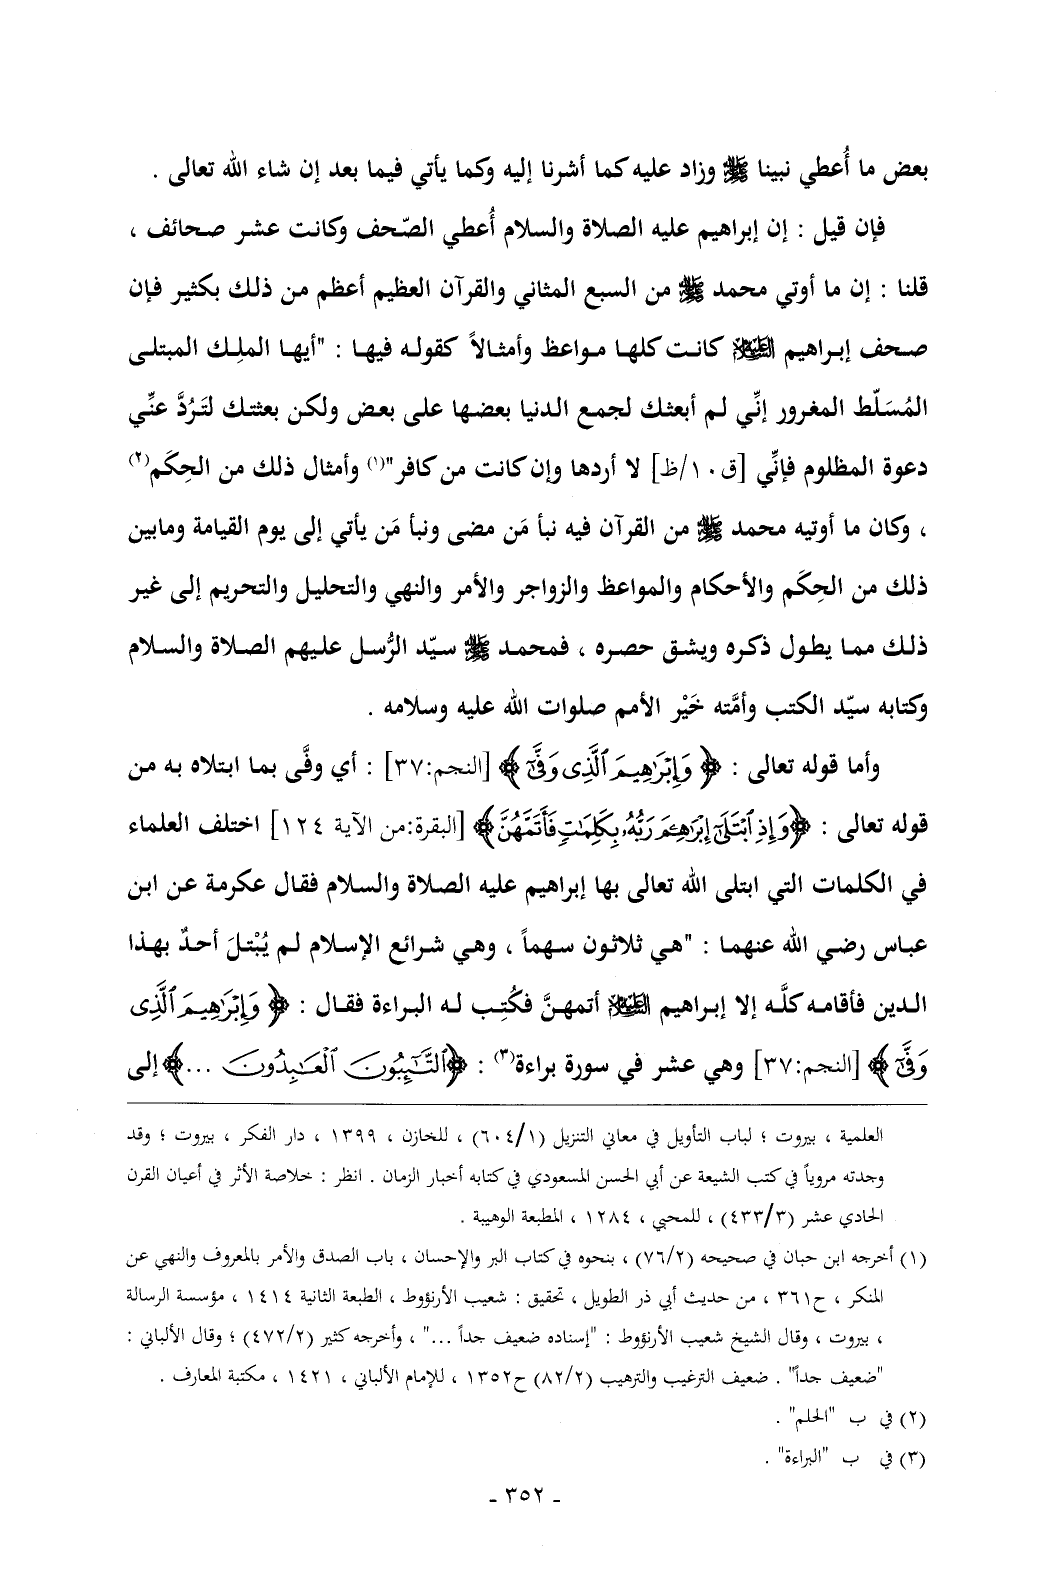 بعض ما أُعطي نبينا ﷺ وزاد عليه كما أشرنا إليه وكما يأتي فيما بعد إن شاء الله تعالى .
فإن قيل : إن إبراهيم عليه الصلاة والسلام أُعطي الصّحف وكانت عشر صحائف ،
قلنا : إن ما أوتي محمد ﷺ من السبع المثاني والقرآن العظيم أعظم من ذلك بكثير فإن
صحف إبراهيم العليه السلام كانت كلها مواعظ وأمثالاً كقوله فيها : "أيها الملِك المبتلى
المُسَلّط المغرور إنِّي لم أبعثك لجمع الدنيا بعضها على بعض ولكن بعثتك لتَرُدَّ عنِّي
دعوة المظلوم فإنِّي [ق١٠/ظ] لا أردها وإن كانت من كافر"(١) وأمثال ذلك من الحِكَم(٢)
، وكان ما أوتيه محمد ﷺ من القرآن فيه نبأ مَن مضى ونبأ مَن يأتي إلى يوم القيامة ومابين
ذلك من الحِكَم والأحكام والمواعظ والزواجر والأمر والنهي والتحليل والتحريم إلى غير
ذلك مما يطول ذكره ويشق حصره ، فمحمد ﷺ سيّد الرُّسل عليهم الصلاة والسلام
وكتابه سيّد الكتب وأمَّته خَيْر الأمم صلوات الله عليه وسلامه .
وأما قوله تعالى : ﴿ وَإِبْرَاهِيمَ ٱلَّذِى وَفَّىٰٓ ﴾ [النجم:٣٧] : أي وفَّى بما ابتلاه به من
قوله تعالى : ﴿وَإِذِ ٱبْتَلَىٰٓ إِبْرَاهِـۧمَ رَبُّهُۥ بِكَلِمَـٰتٍ فَأَتَمَّهُنَّ﴾ [البقرة:من الآية ١٢٤] اختلف العلماء
في الكلمات التي ابتلى الله تعالى بها إبراهيم عليه الصلاة والسلام فقال عكرمة عن ابن
عباس رضي الله عنهما : "هي ثلاثون سهماً ، وهي شرائع الإسلام لم يُبْتلَ أحدٌ بهذا
الدين فأقامه كلَّه إلا إبراهيم العليه السلام أتمهنَّ فكُتِب له البراءة فقال : ﴿ وَإِبْرَاهِيمَ ٱلَّذِى
وَفَّىٰٓ ﴾ [النجم:٣٧] وهي عشر في سورة براءة(٣) : ﴿ٱلتَّـٰٓئِبُونَ ٱلْعَـٰبِدُونَ ...﴾ إلى
العلمية ، بيروت ؛ لباب التأويل في معاني التنزيل (٦٠٤/١) ، للخازن ، ١٣٩٩ ، دار الفكر ، بيروت ؛ وقد
وجدته مروياً في كتب الشيعة عن أبي الحسن المسعودي في كتابه أخبار الزمان . انظر : خلاصة الأثر في أعيان القرن
الحادي عشر (٤٣٣/٣) ، للمحبي ، ١٢٨٤ ، المطبعة الوهيبة .
(١) أخرجه ابن حبان في صحيحه (٧٦/٢) ، بنحوه في كتاب البر والإحسان ، باب الصدق والأمر بالمعروف والنهي عن
المنكر ، ح٣٦١ ، من حديث أبي ذر الطويل ، تحقيق : شعيب الأرنؤوط ، الطبعة الثانية ١٤١٤ ، مؤسسة الرسالة
، بيروت ، وقال الشيخ شعيب الأرنؤوط : "إسناده ضعيف جداً ..." ، وأخرجه كثير (٤٧٢/٢) ؛ وقال الألباني :
"ضعيف جداً" . ضعيف الترغيب والترهيب (٨٢/٢) ح١٣٥٢ ، للإمام الألباني ، ١٤٢١ ، مكتبة المعارف .
(٢) في ب "الحلم" .
(٣) في ب "البراءة" .
- ٣٥٢ -